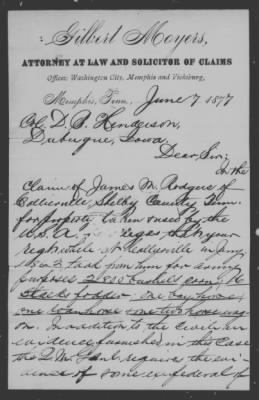 Gilbert Moyers,
ATTORNEY AT LAW AND SOLICITOR OF CLAIMS
Offices: Washington City, Memphis and Vicksburg,
Memphis, Tenn., June 7 1877
Col. D. B. Henderson,
Dubuque, Iowa.
Dear Sir;
In the
Claim of James M. Rodgers of
Collierville, Shelby County, Tenn.
for property taken & used by the
U.S.A. alleges that your
regt while at Collierville in
1862 took from him for camp
purposes 2,835 bushels corn, 16
stacks fodder one bay horse
one two horse wag-
on. In addition to the
evidence furnished in this case
the Q.M. Gen'l requires the evi-
dence of some one federal of